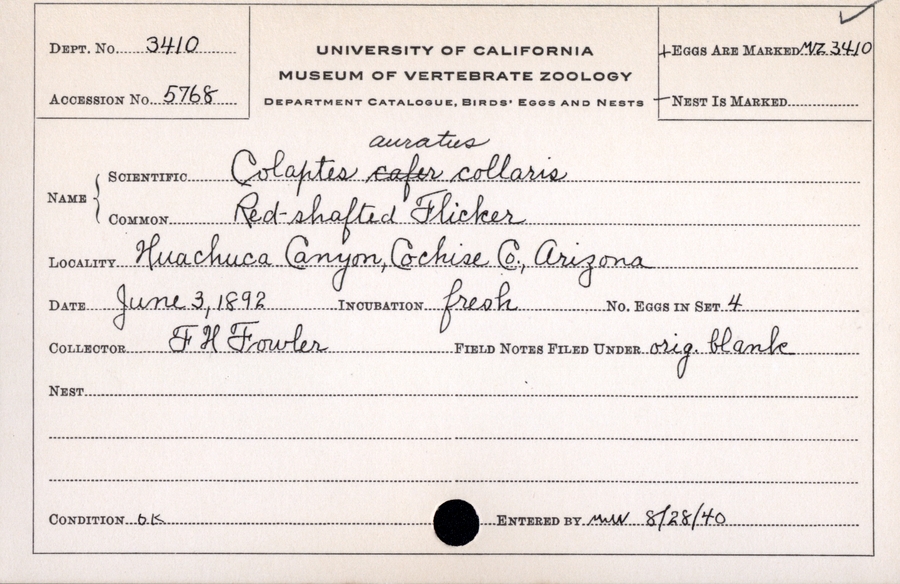 DEPT. NO. 3410
ACCESSION NO. 5768
UNIVERSITY OF CALIFORNIA
MUSEUM OF VERTEBRATE ZOOLOGY
DEPARTMENT CATALOGUE, BIRDS' EGGS AND NESTS
+EGGS ARE MARKED MVZ 3410
NEST IS MARKED
auratus
NAME
SCIENTIFIC Colaptes cafer collaris
COMMON Red-shafted Flicker
LOCALITY Huachuca Canyon, Cochise Co., Arizona
DATE June 3, 1892 INCUBATION fresh NO. EGGS IN SET 4
COLLECTOR F H Fowler FIELD NOTES FILED UNDER orig. blank
NEST
CONDITION OK ENTERED BY 8/28/40